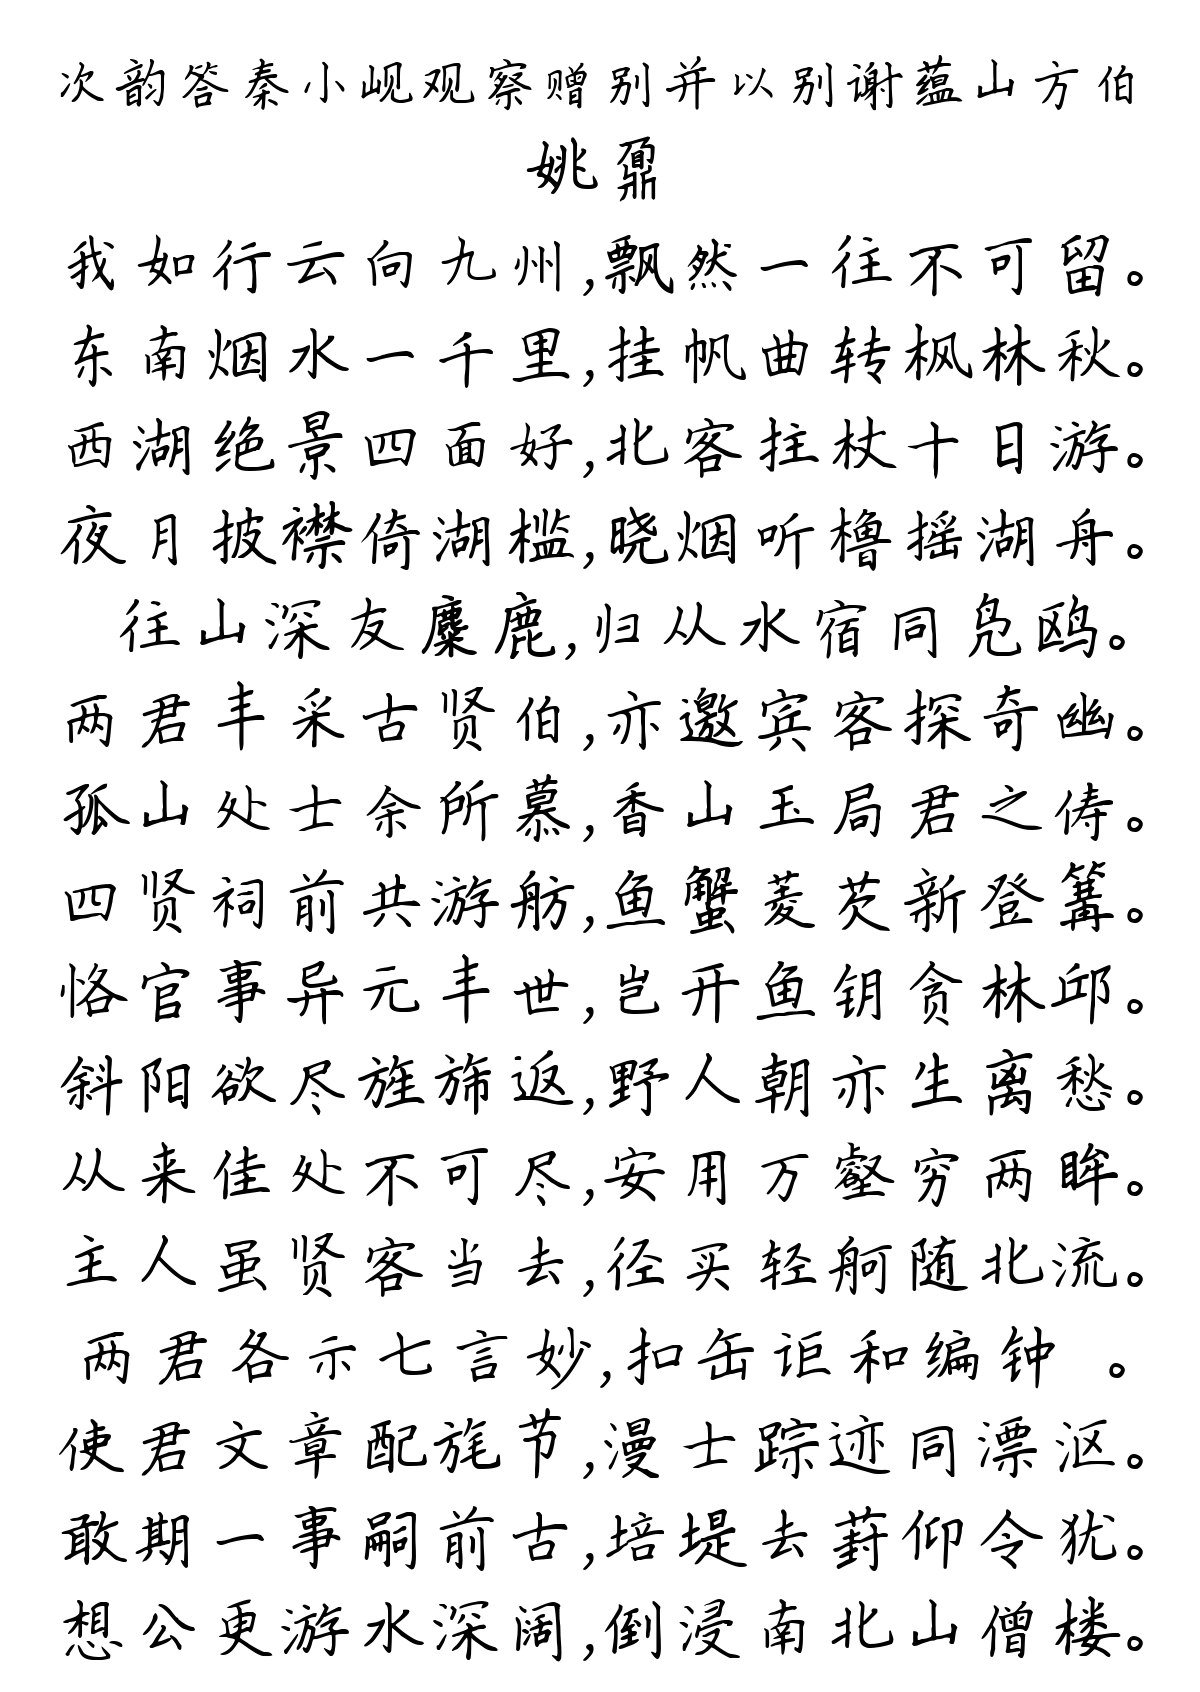 次韵答秦小岘观察赠别并以别谢蕴山方伯
姚鼐
我如行云向九州,飘然一往不可留。
东南烟水一千里,挂帆曲转枫林秋。
西湖绝景四面好,北客拄杖十日游。
夜月披襟倚湖槛,晓烟听橹摇湖舟。
往山深友麋鹿,归从水宿同凫鸥。
两君丰采古贤伯,亦邀宾客探奇幽。
孤山处士余所慕,香山玉局君之俦。
四贤祠前共游舫,鱼蟹菱芡新登篝。
恪官事异元丰世,岂开鱼钥贪林邱。
斜阳欲尽旌旆返,野人朝亦生离愁。
从来佳处不可尽,安用万壑穷两眸。
主人虽贤客当去,径买轻舸随北流。
两君各示七言妙,扣缶讵和编钟 。
使君文章配旄节,漫士踪迹同漂沤。
敢期一事嗣前古,培堤去葑仰令犹。
想公更游水深阔,倒浸南北山僧楼。